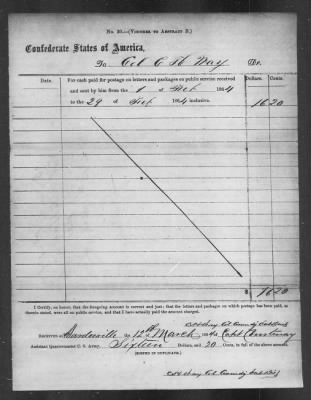 No. 30.—(Voucher to Abstract B.)
Confederate States of America,
To Col C H Way Dr.
Date. Dollars. Cents.
For cash paid for postage on letters and packages on public service received
and sent by him from the 1 of Feb 1864
to the 29 of Feb 1864 inclusive. 16 20
$ 16 20
I Certify, on honor, that the foregoing Account is correct and just; that the letters and packages on which postage has been paid, as
therein stated, were all on public service, and that I have actually paid the amount charged.
C H Way Col Comdg
Received the 12th March 1864 of Capt
Assistant Quartermaster C. S. Army, Sixteen Dollars, and 20 Cents, in full of the above account.
[SIGNED IN DUPLICATE.]
C H Way Col Comdg